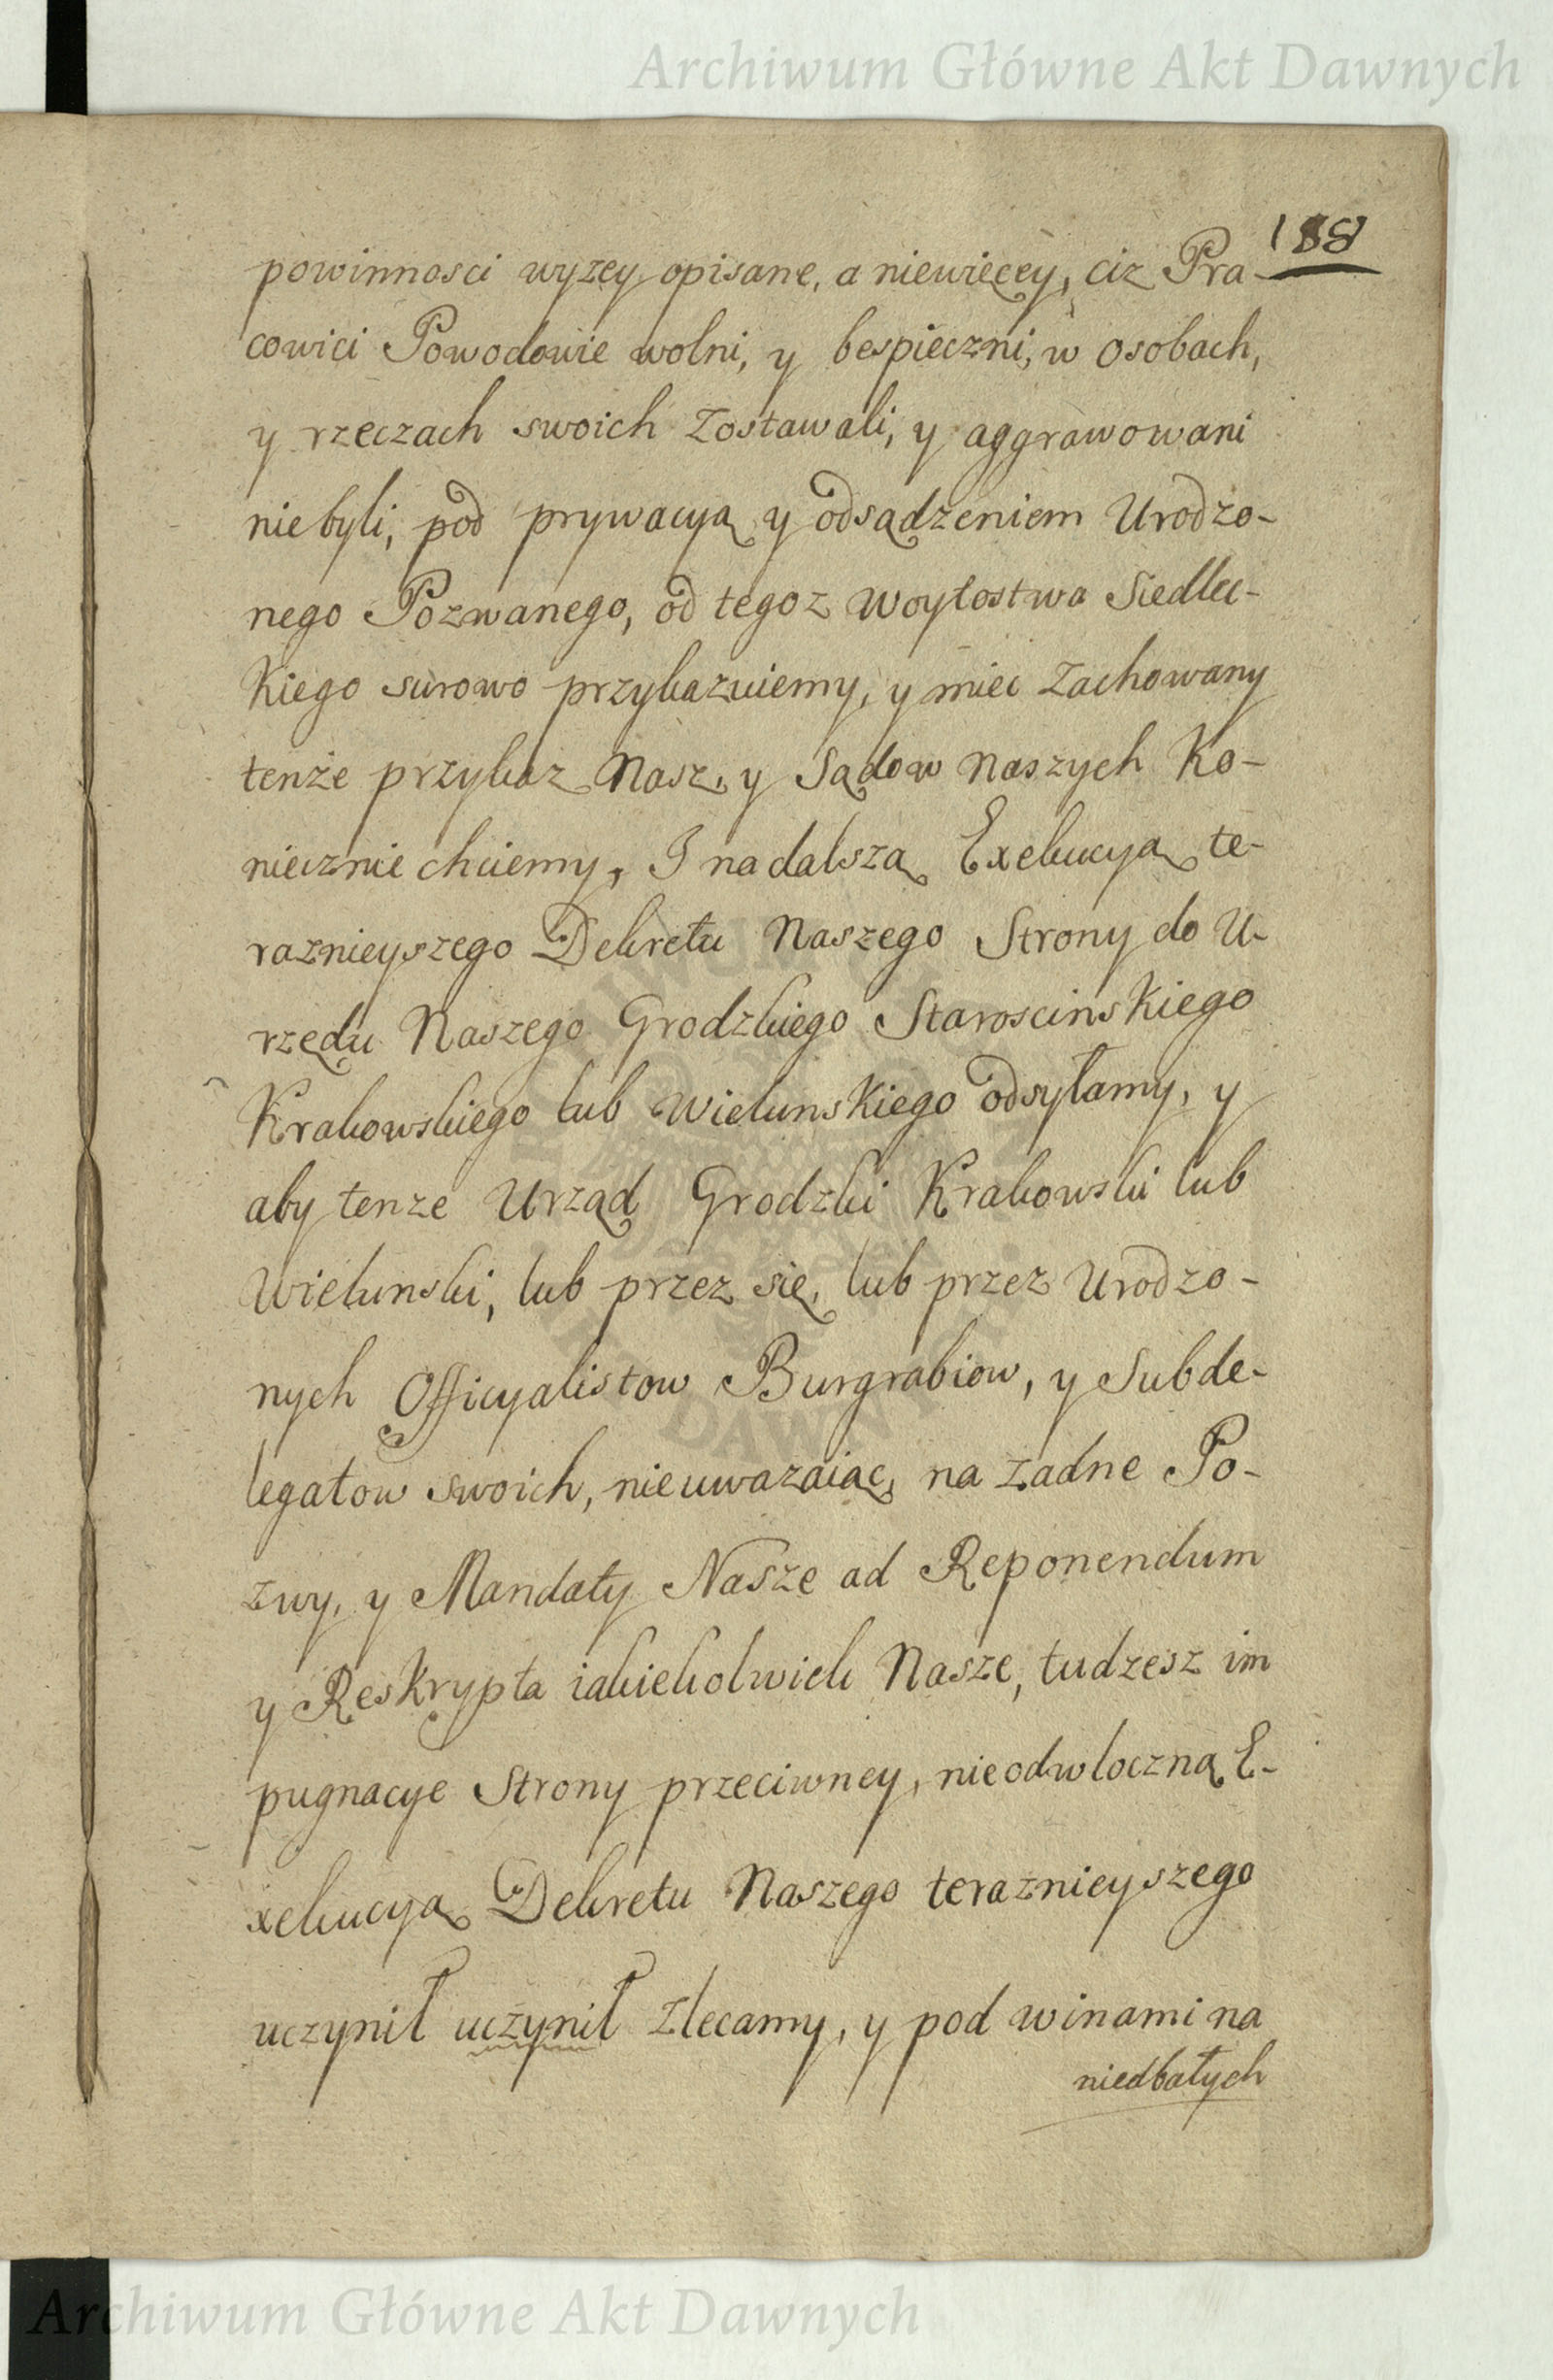 Archiwum Główne Akt Dawnych
188
powinnosci wyzey opisane, a niewięcey, ciz Pra-
cowici Powodowie wolni, y bespieczni, w osobach,
y rzeczach swoich zostawali, y aggrawowani
niebyli, pod prywacyą y odsądzeniem Urodzo-
nego Pozwanego, od tegoz Woytostwa Siedlec-
kiego surowo przykazuiemy, y miec zachowany
tenże przykaz Nasz, y Sądow Naszych Ko-
niecznie chcemy, I na dalszą Exekucyą te-
raznieyszego Dekretu Naszego Strony do U-
rzędu Naszego Grodzkiego Staroscinskiego
Krakowskiego lub Wielunskiego odsyłamy, y
aby tenze Urząd Grodzki Krakowski lub
Wielunski, lub przez się, lub przez Urodzo-
nych Officyalistow Burgrabiow, y Subde-
legatow swoich, nieuwazaiąc, na zadne Po-
zwy, y Mandaty Nasze ad Reponendum
y Reskrypta iakiekolwiek Nasze, tudzesz im
pugnacye Strony przeciwney, nieodwloczną E-
xekucyą Dekretu Naszego teraznieyszego
uczynił uczynił zlecamy, y pod winami na
niedbałych
Archiwum Główne Akt Dawnych